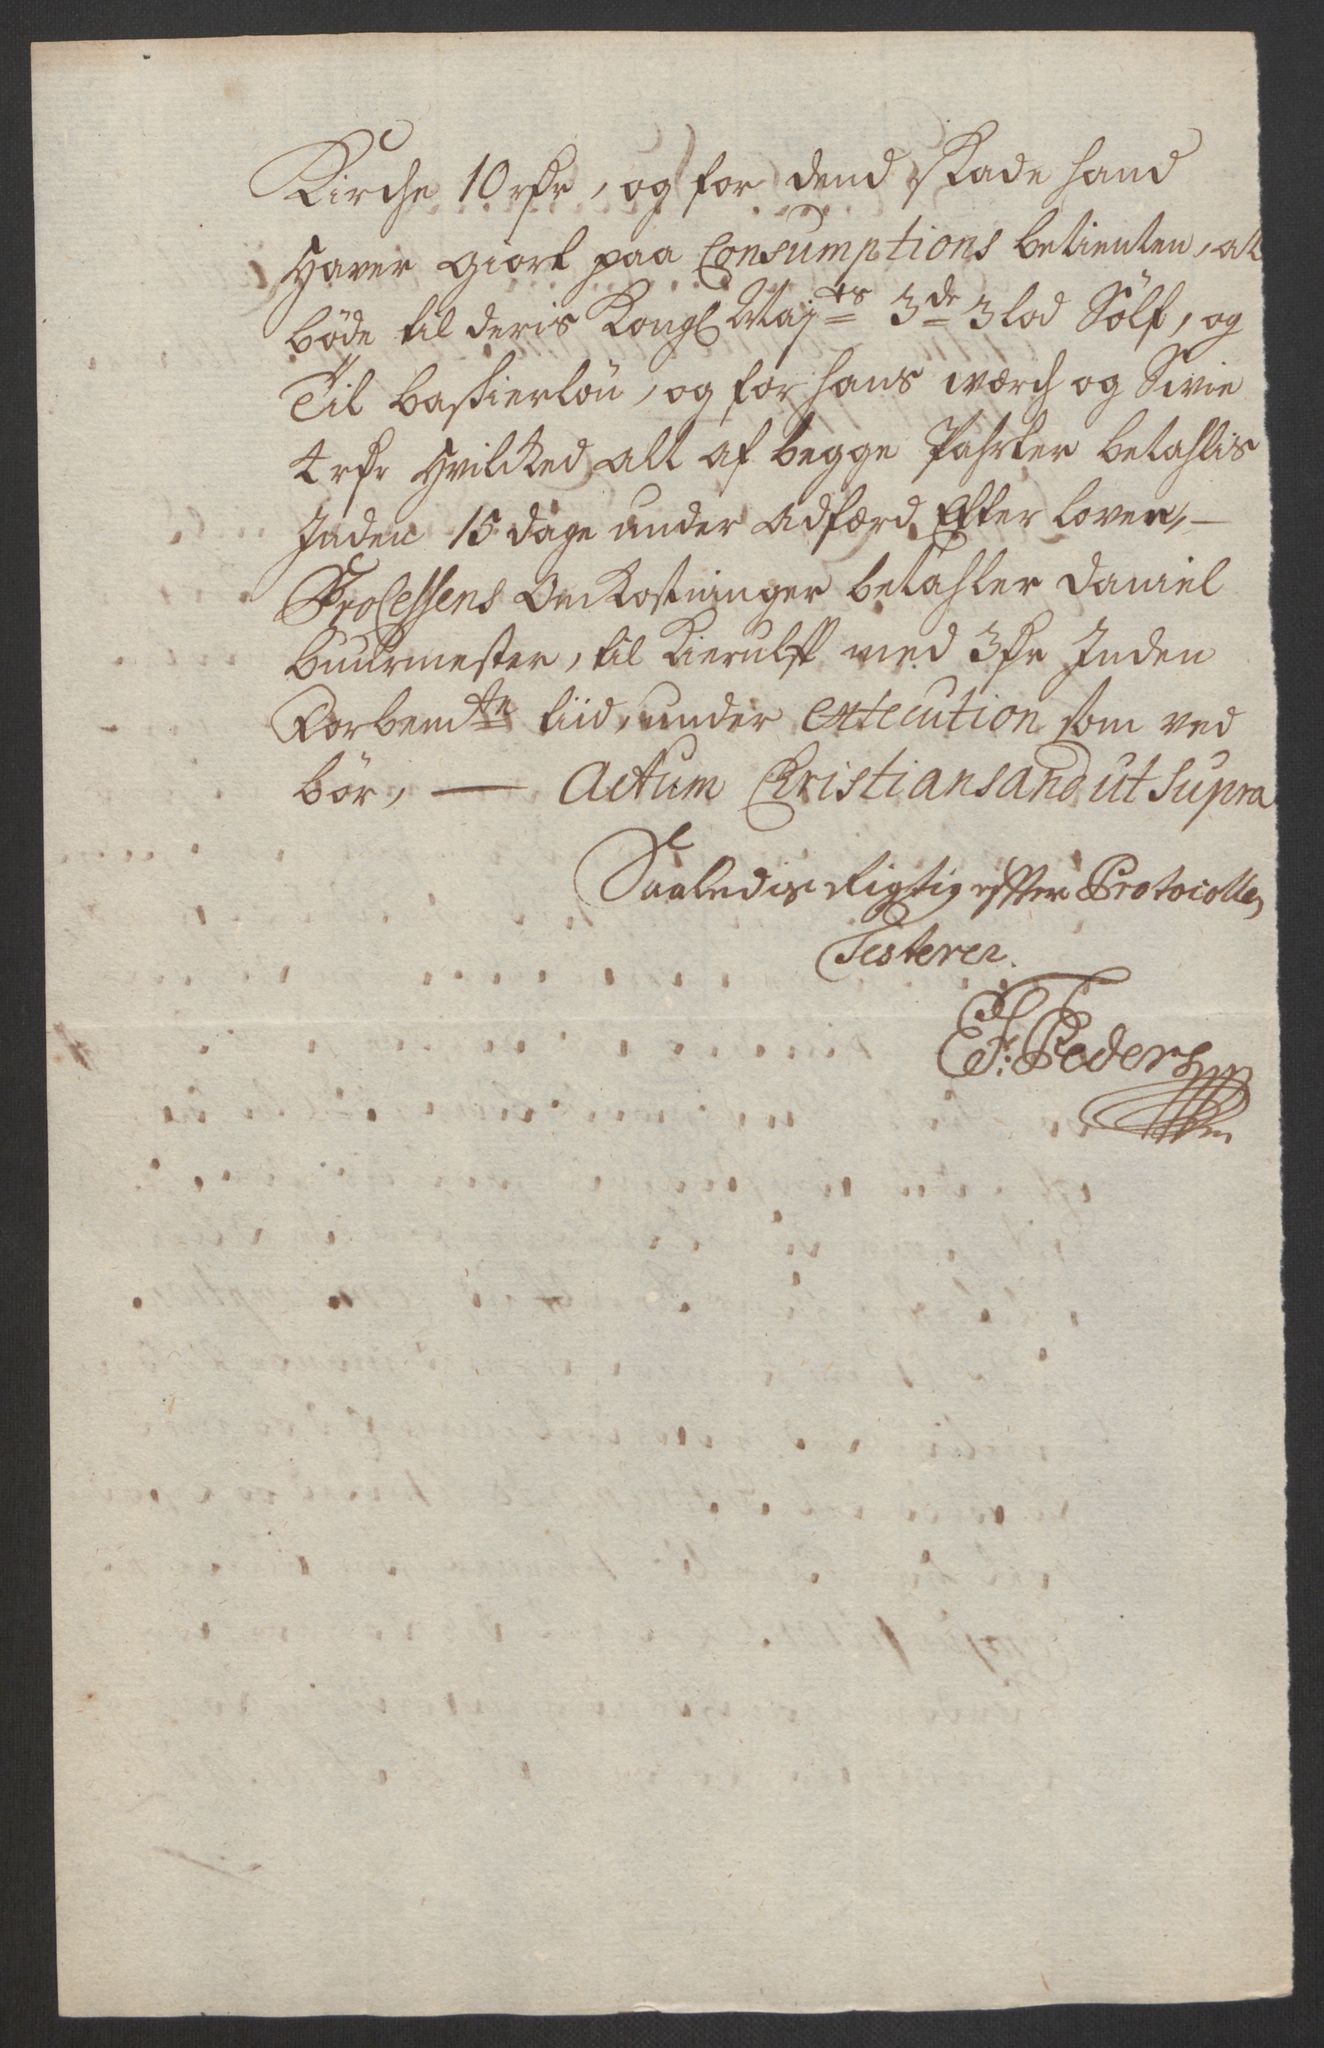 Kirche 10 rdr, og for dend skade hand
Haver giort paa Consumptions betienten, at
böde til deris Kongl Maj:ts 3de 3 lod Sölf, og
Til baskierlön, og for hans værch og Svie
4 rdr hvilcked alt af begge Pahrter betahlis
Inden 15 dage under adfærd Efter loven, —
Processens Omkostninger betahler Daniel
Buurmester, til Kierulff med 3 dr Inden
Forbemte tiid, under execution som ved
bör, — Actum Christiansand ut Supra
Saaledis Rigtig efter Protocollen
Testerer.
Peders